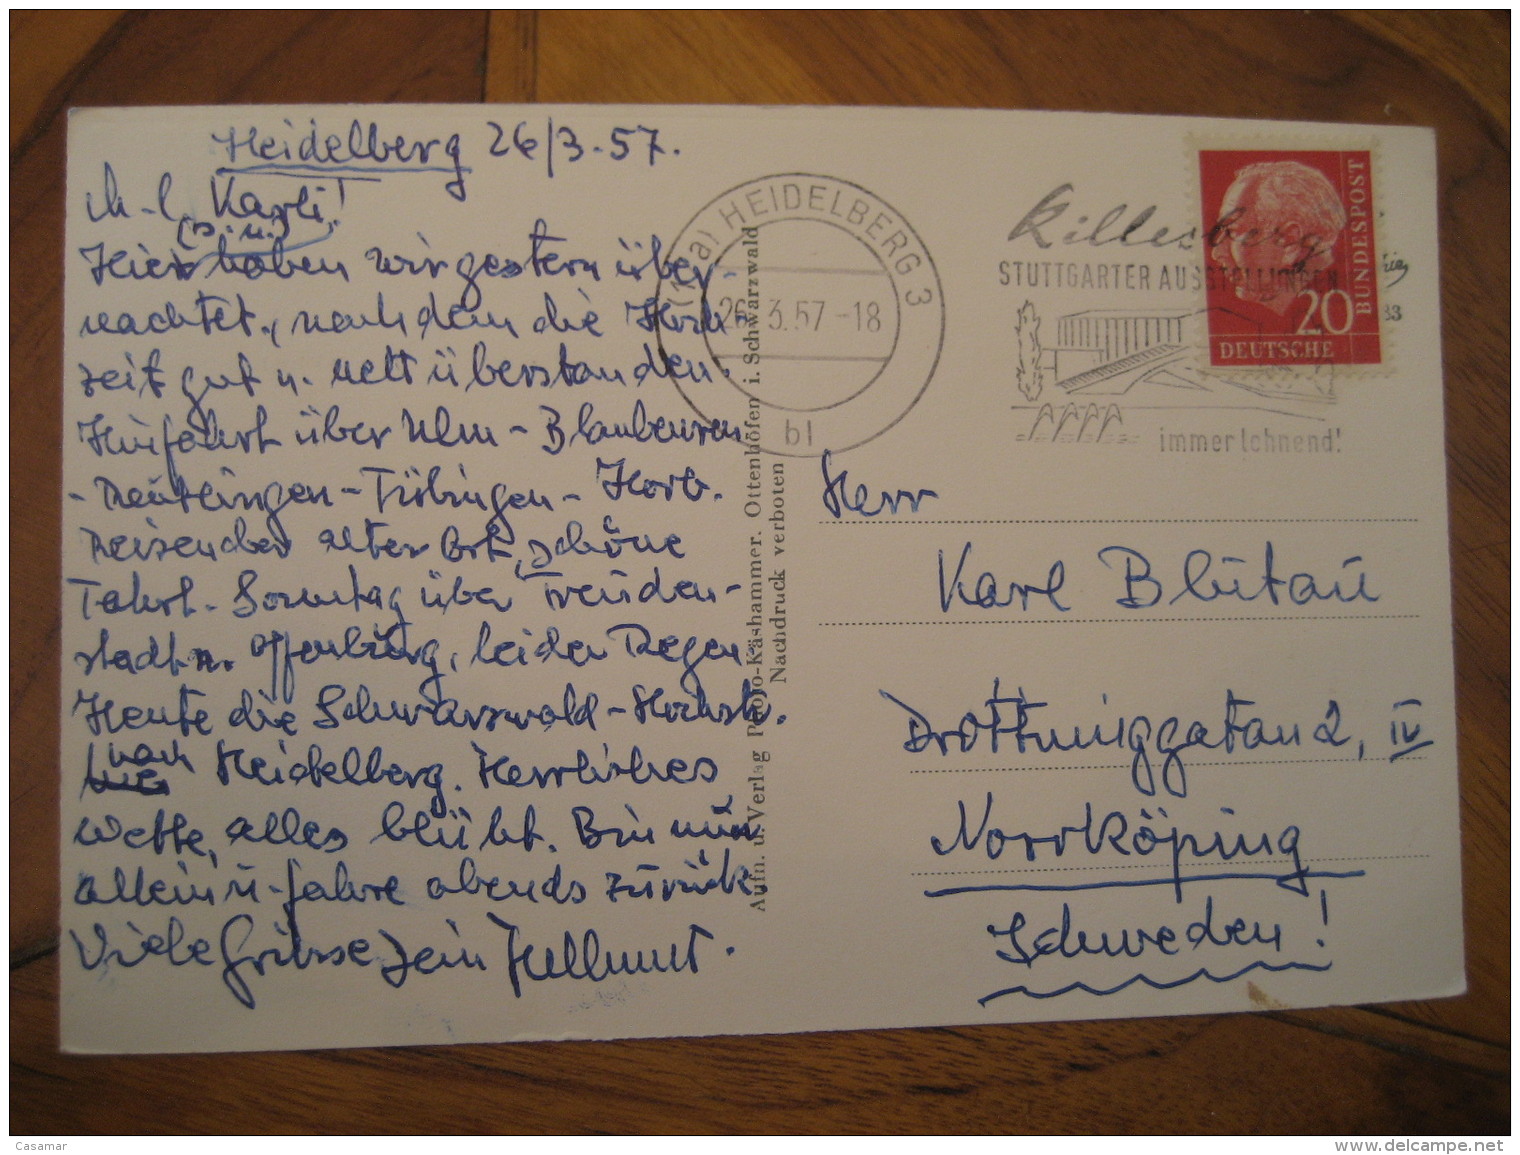 Heidelberg 26/3.57.
M.l. Karli!
(s.u.)
Hier haben wir gestern über-
nachtet, nachdem die Hoch-
zeit gut u. nett überstanden.
Hinfahrt über Ulm - Blaubeuren
- Reutlingen - Tübingen - Horb.
Reizender alter Ort, schöne
Fahrt. Sonntag über Freuden-
stadt n. Offenburg, leider Regen.
Heute die Schwarzwald-Hochstr.
nach Heidelberg. Herrliches
Wetter, alles blüht. Bin nun
allein u. fahre abends zurück.
Viele Grüsse Dein Hellmut.
Aufn. u. Verlag Photo-Käshammer. Ottenhöfen i. Schwarzwald
Nachdruck verboten
(17a) HEIDELBERG 3
26.3.57-18
bl
Killesberg
STUTTGARTER AUSSTELLUNGEN
immer lohnend!
BUNDESPOST
20
DEUTSCHE
33
Herr
Karl Blütau
Drottninggatan 2, IV
Norrköping
Schweden!
Casamar
www.delcampe.net